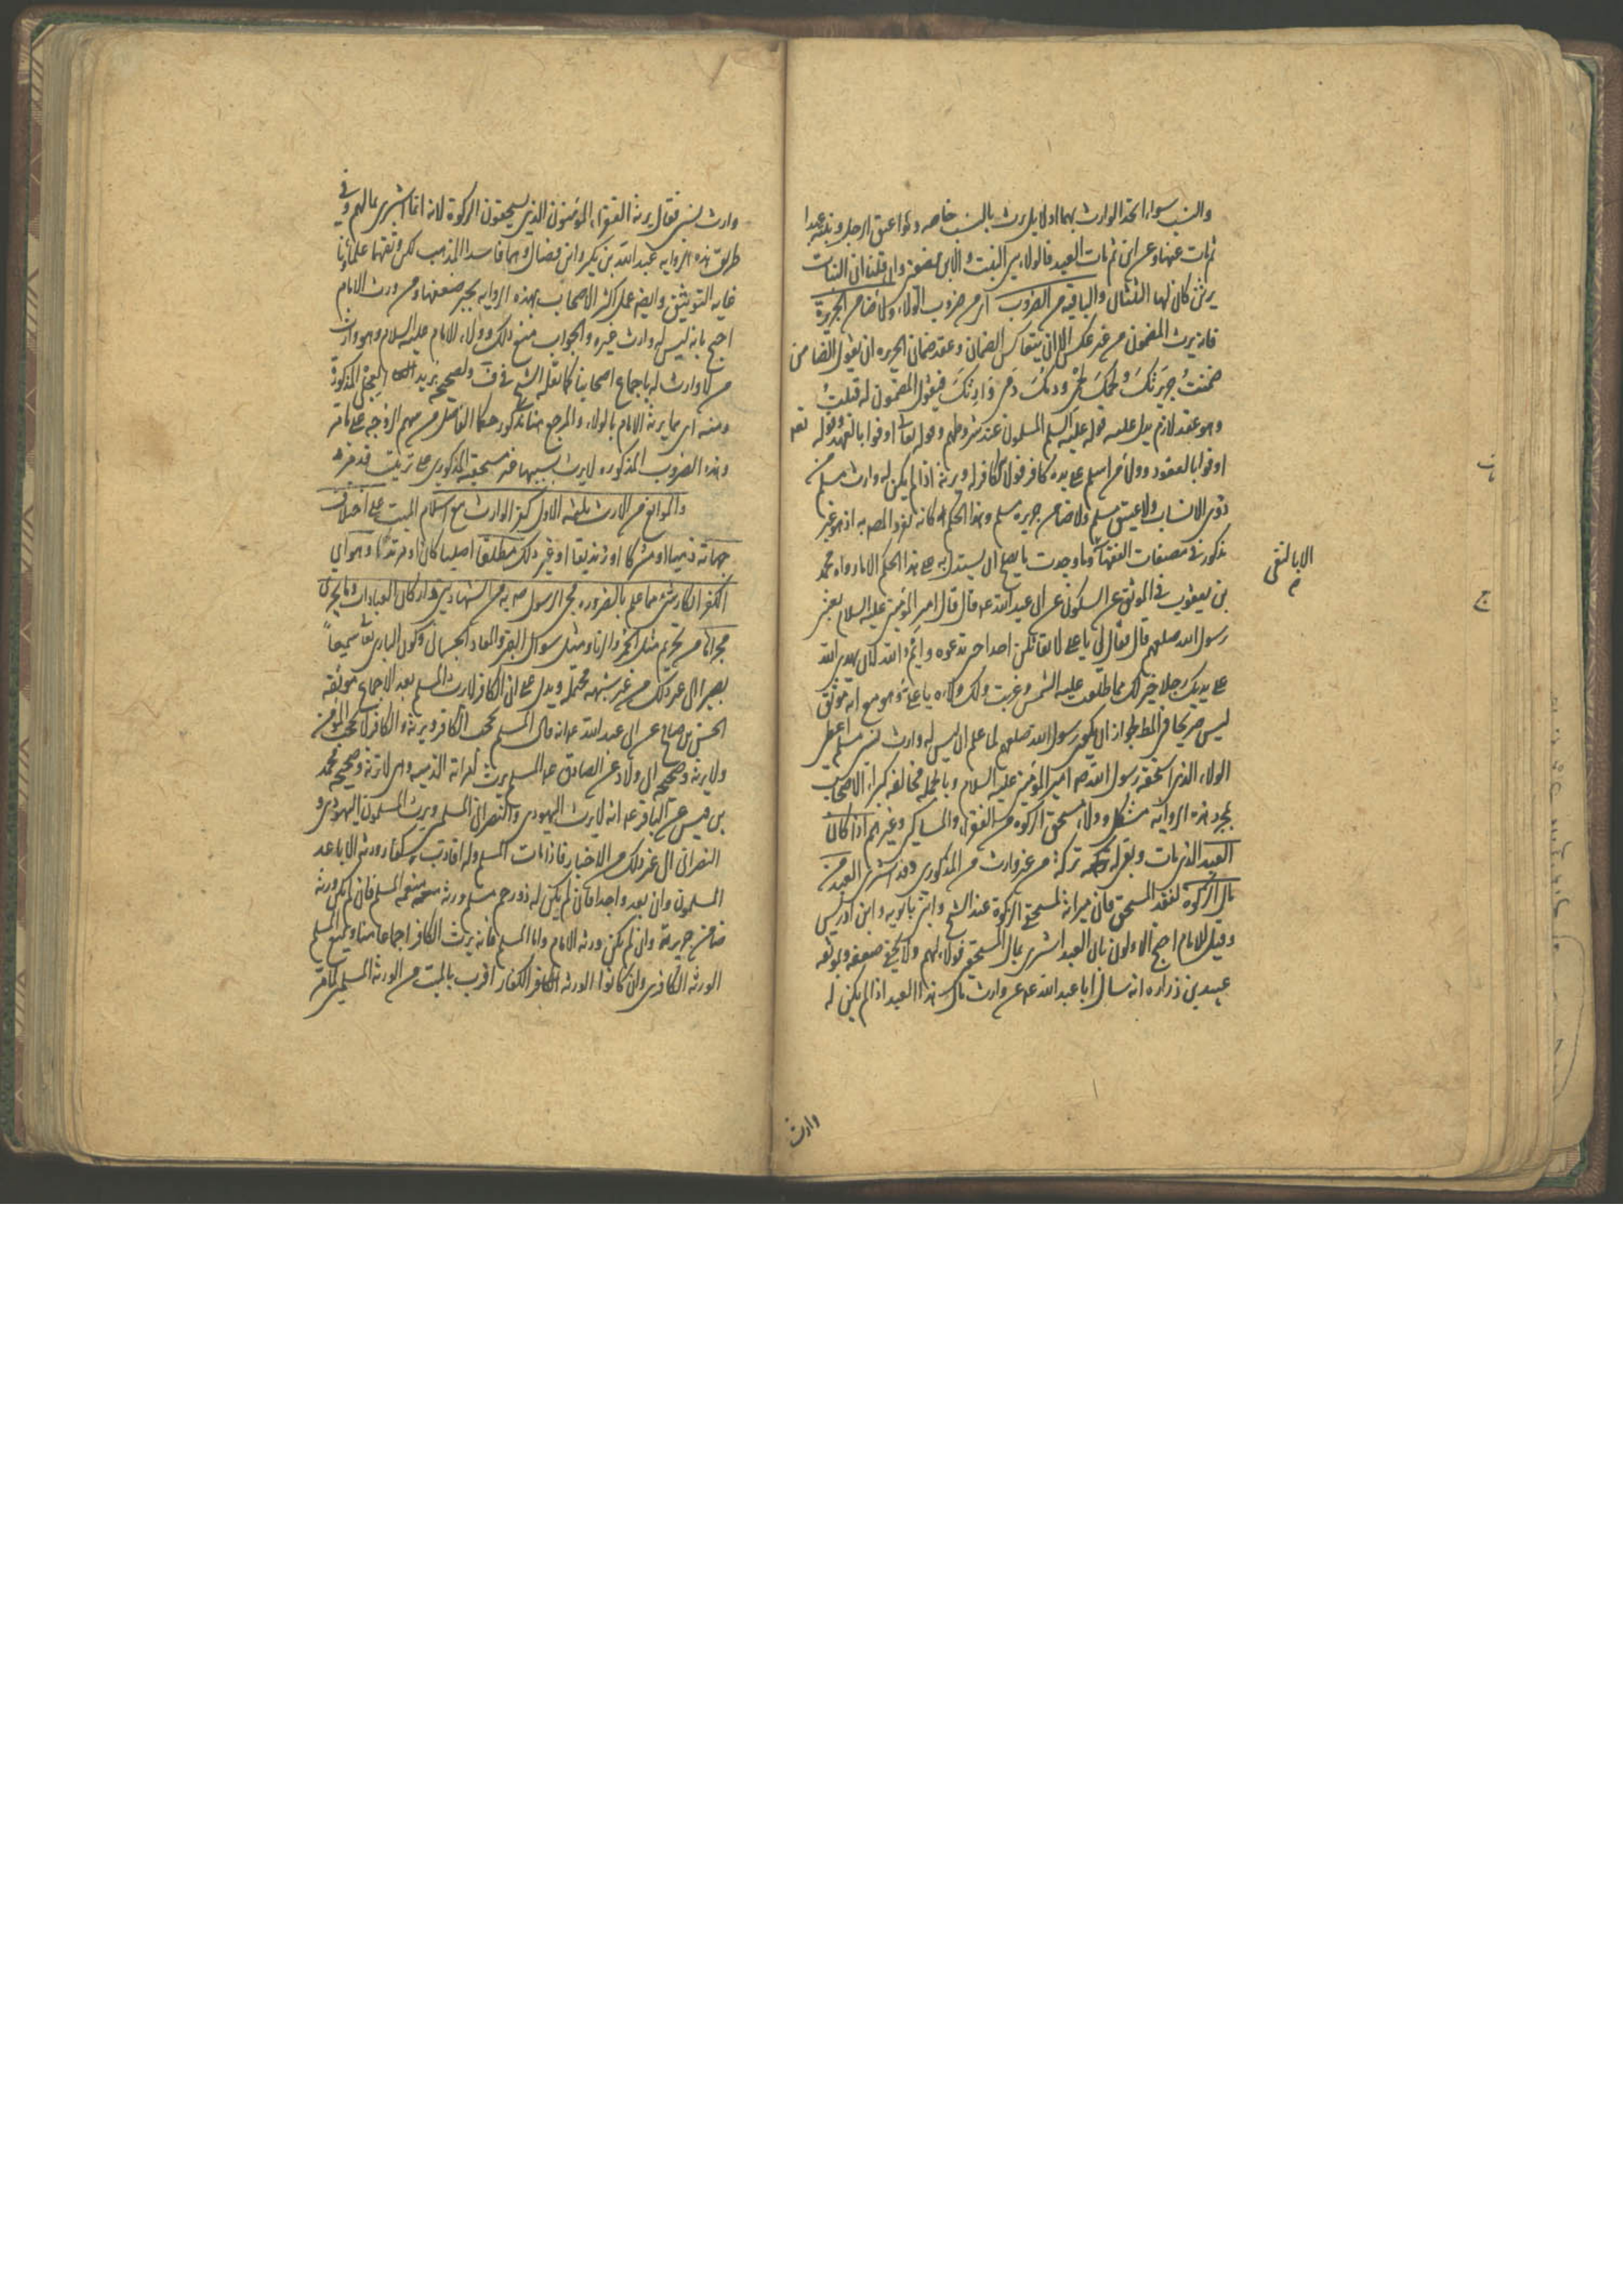 والنسب سواء اتحد الوارث بهما اولا بل يرث بالنسب خاصه ولو اعتق الرجل وبنته عبدا
ثم مات عنها وعن ابن ثم مات العبد فالولاء بين البنت والابن نصفين وان قلنا ان البنات
يرثن كان لها الثلثان والباقيه من الضروب اى من ضروب الولاء ولاء ضامن الجريرة
فانه يرث المضمون من غير عكس الا ان يتعاكس الضمان وعقد ضمان الجريره ان يقول الضامن
ضمنتُ جريرتكَ ولحمكَ لحمى ودمكَ دمى وارثكَ فيقول المضمون له قبلتُ
وهو عقد لازم يدل عليه قوله عليه السلم المسلمون عند شروطهم وقوله تعالى اوفوا بالعهد وقوله تعه
اوفوا بالعقود وولاء من اسلم على يده كافر فولاء الكافر له ويرثه اذا لم يكن له وارث مسلم من
ذوى الانساب ولا عتيق مسلم ولا ضامن جريره مسلم وهذا الحكم كانه تفرد المصه به اذ هو غير
مذكور فى مصنفات الفقهاء وما وجدت ما يصلح ان يستدل به على هذا الحكم الا ما رواه محمد
بن يعقوب فى الموثق عن السكونى عن ابى عبد الله عه قال قال امير المؤمنين عليه السلام بعثنى
رسول الله صلعم قال فقال لى يا على لا تقاتلن احدا حتى تدعوه وايم الله لان يهدى الله
على يديك رجلا خير لك مما طلعت عليه الشمس وغربت ولك ولاؤه يا على وهو مع انه موثق
ليس صريحا فى المط لجواز ان يكون رسول الله صلعم لما علم ان ليس له وارث نسبى مسلم اعطى
الولاء الذى استحقه رسول الله صه امير المؤمنين عليه السلام وبالجمله مخالفه كبراء الاصحاب
بمجرد هذه الروايه مشكل وولاء مستحق الزكوه من الفقراء والمساكين وغيرهم اذا كان
العبد الذى مات وبقى له تركة من غير وارث من المذكورين وقد اشترى العبد من
مال الزكوة لفقد المستحق فان ميراثه لمستحق الزكوة عند الشيخ وابن بابويه وابن ادريس
وقيل للامام احتج الاولون بان العبد اشترى بمال المستحق فولاؤه لهم ولا يخفى ضعفه ولموثقه
عبيد بن زراره انه سال ابا عبد الله عه عن وارث مال هذا العبد اذا لم يكن له
وارث
الا بالتقى
وارث نسبى فقال يرثه الفقراء المؤمنون الذين يستحقون الزكوة لانه انما اشترى بمالهم وفى
طريق هذه الروايه عبد الله بن بكير وابن فضال وهما فاسدا المذهب لكن وثقهما علماؤنا
غايه التوثيق وايضه عمل اكثر الاصحاب بهذه الروايه يجبر ضعفها ومن ورث الامام
احتج بانه ليس له وارث غيره والجواب منع ذلك وولاء الامام عليه السلام وهو وارث
من لا وارث له باجماع اصحابنا كما نقله الشيخ فى ف ولصحيحه بريد العجلى المذكورة
ومنه اى مما يرثه الامام بالولاء والمرجع هنا مذكور حكما الفاضل من سهم الزوجه على ما مر
وهذه الضروب المذكوره لا يرث بسببها غير مستحقيه المذكورين على ترتيب قد مر
والموانع من الارث ثلثه الاول كفر الوارث مع اسلام الميت على اختلاف
جهاته ذميا او مشركا او زنديقا او غير ذلك مطلقا اصليا كان او مرتدا وهو اى
الكفر انكار شئ مما علم بالضروره مجئ الرسول صه به من الشهادتين واركان العبادات وما يجرى
مجراها من تحريم مثل الخمر والزنا ومثل سوال القبر والمعاد الجسمانى وكون البارى تعالى سميعاً
بصيرا الى غير ذلك من غير شبهه محتمله ويدل على ان الكافر لا يرث المسلم بعد الاجماع موثقه
الحسن بن صالح عن ابى عبد الله عه انه قال المسلم يحجب الكافر ويرثه والكافر لا يحجب المؤمن
ولا يرثه وصحيحه ابى ولاد عن الصادق عه المسلم يرث امراته الذميه وهى لا ترثه وصحيحه محمد
بن قيس عن الباقر عه انه لا يرث اليهودى والنصرانى المسلم ويرث المسلمون اليهودى و
النصرانى الى غير ذلك من الاخبار فاذا مات المسلم وله اقارب كفار ورثه الاباعد
المسلمون وان بعد واحدا فان لم يكن له ذو رحم مسلم ورثه منعم المسلم فان لم يكن ورثه
ضامن جريرة وان لم يكن ورثه الامام واما المسلم فانه يرث الكافر اجماعا منا ويمنع المسلم
الورثه الكافرين وان كانوا الورثه الكفار اقرب بالميت من الورثه المسلمين لما مر